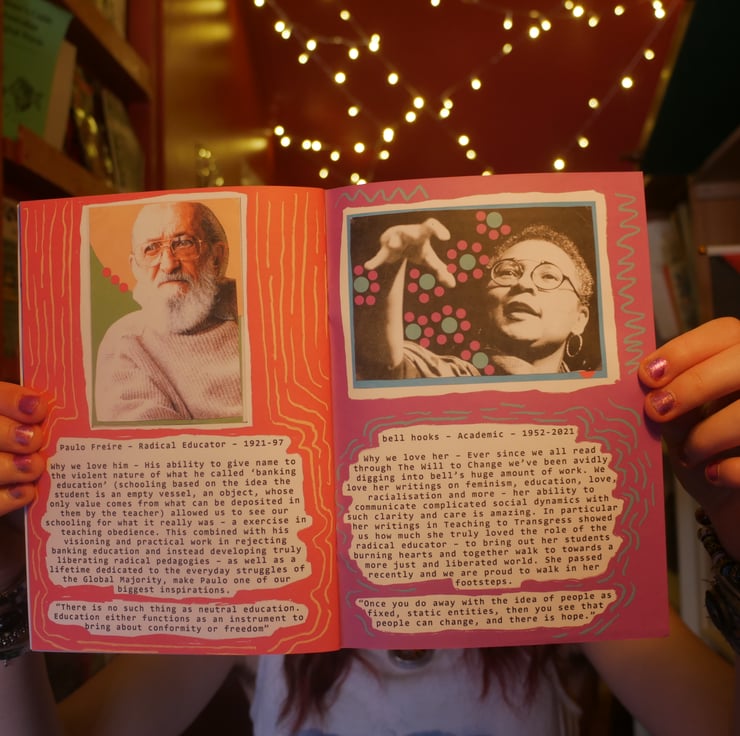 Paulo Freire – Radical Educator – 1921-97
Why we love him – His ability to give name to
the violent nature of what he called 'banking
education' (schooling based on the idea the
student is an empty vessel, an object, whose
only value comes from what can be deposited in
them by the teacher) allowed us to see our
schooling for what it really was – a exercise in
teaching obedience. This combined with his
visioning and practical work in rejecting
banking education and instead developing truly
liberating radical pedagogies – as well as a
lifetime dedicated to the everyday struggles of
the Global Majority, make Paulo one of our
biggest inspirations.
"There is no such thing as neutral education.
Education either functions as an instrument to
bring about conformity or freedom"
bell hooks – Academic – 1952-2021
Why we love her – Ever since we all read
through The Will to Change we've been avidly
digging into bell's huge amount of work. We
love her writings on feminism, education, love,
racialisation and more – her ability to
communicate complicated social dynamics with
such clarity and care is amazing. In particular
her writings in Teaching to Transgress showed
us how much she truly loved the role of the
radical educator – to bring out her students
burning hearts and together walk to towards a
more just and liberated world. She passed
recently and we are proud to walk in her
footsteps.
"Once you do away with the idea of people as
fixed, static entities, then you see that
people can change, and there is hope."